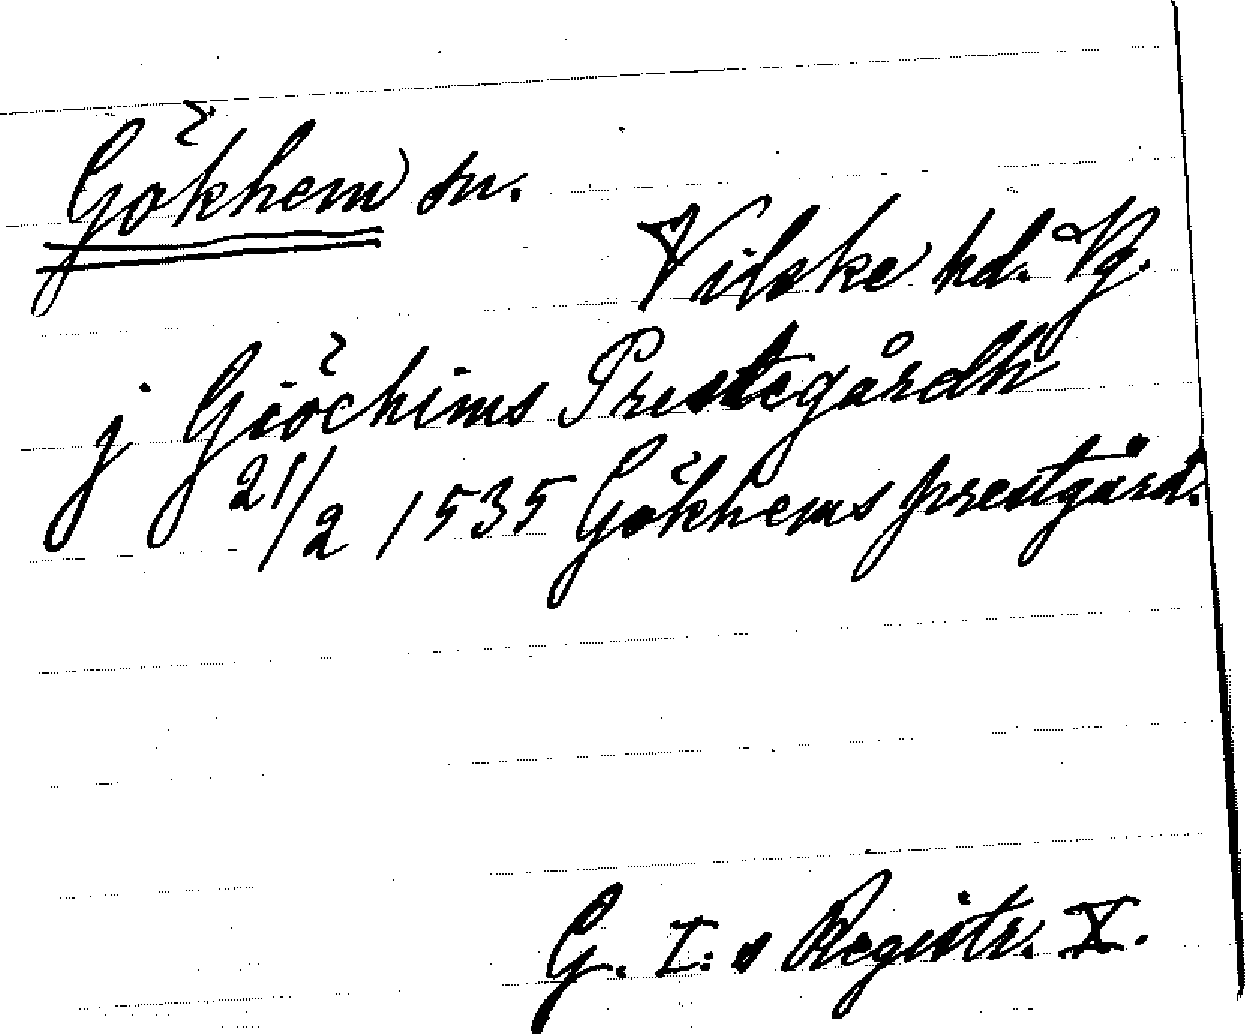 Gökhem sn.
Vilske hd. Vg.
j Giöchims Prestegårdh
21/2 1535 Gökhems prestgård.
G. I:s Registr. X.